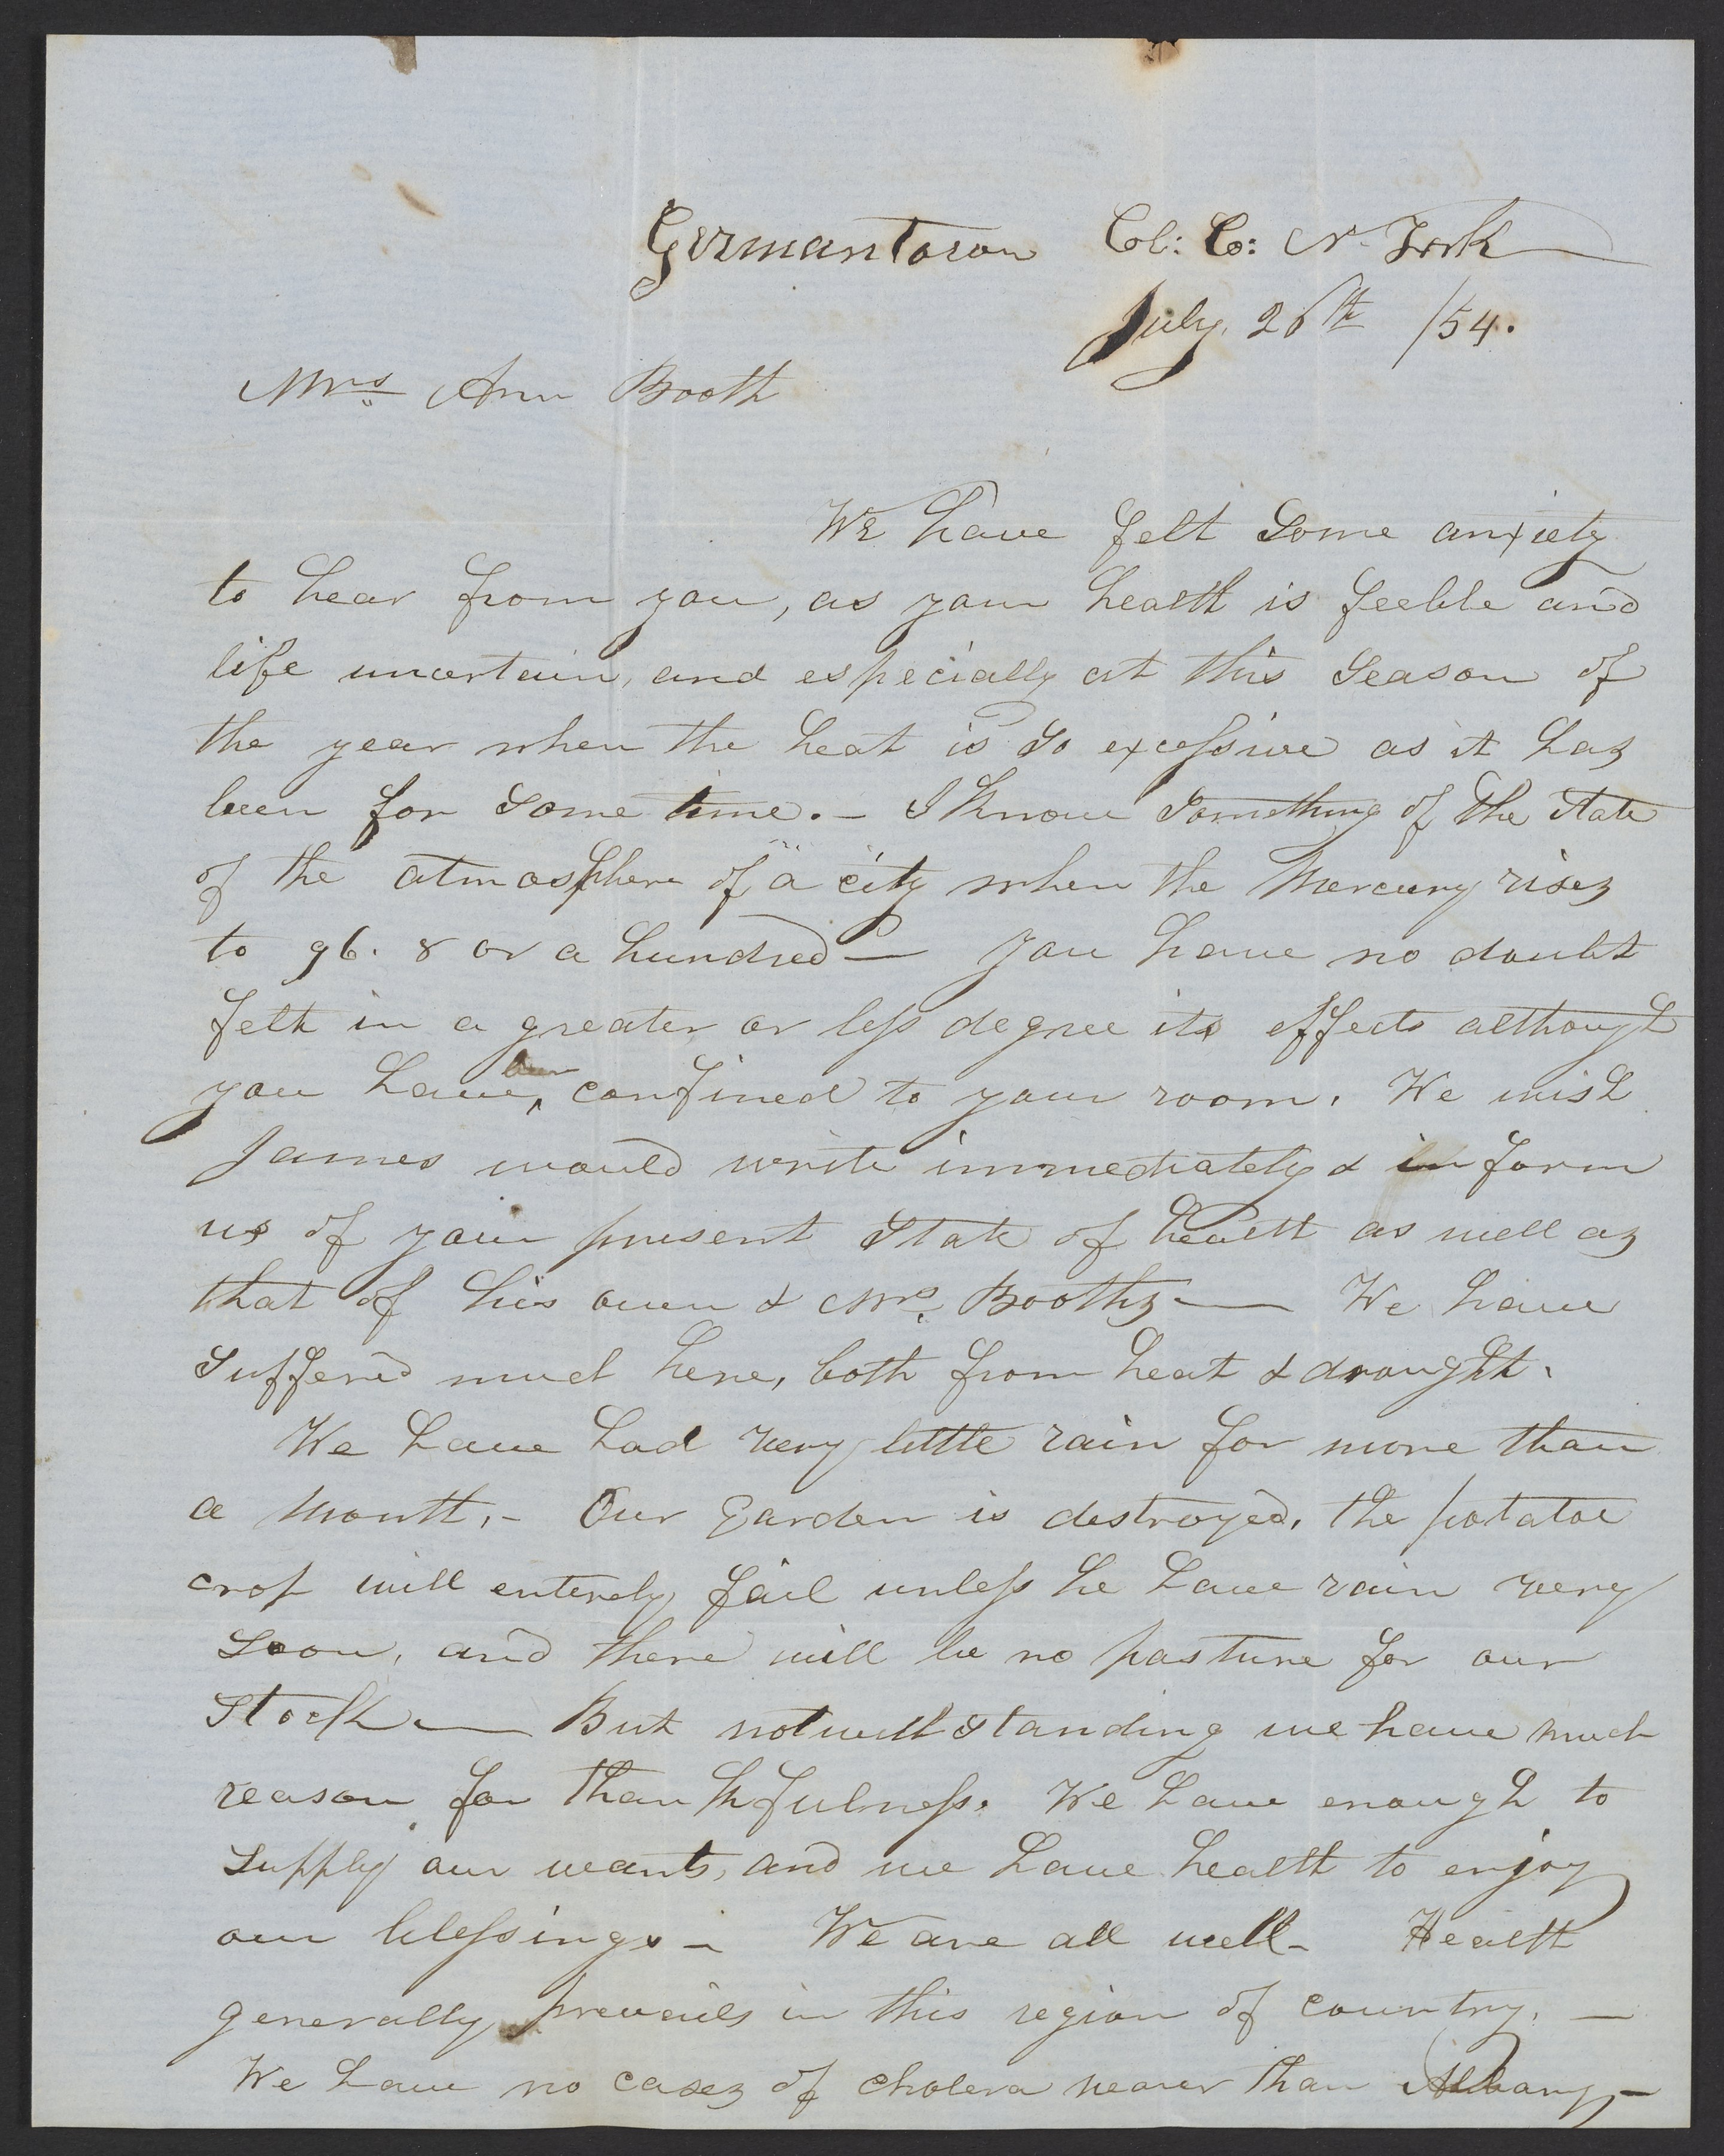 Germantown Col: Co: N. York
July, 26th /54.
Mrs Ann Booth
We have felt some anxiety
to hear from you, as your health is feeble and
life uncertain, and especially at this season of
the year when the heat is so excessive as it has
been for some time. - I know something of the state
of the atmosphere of a city when the mercury rises
to 96. 8 or a hundred — you have no doubt
felt in a greater or less degree its effects although
you have been confined to your room. We wish
James would write immediately & inform
us of your present state of health as well as
that of his own & Mrs. Booths — We have
suffered much here, both from heat & drought.
We have had very little rain for more than
a month, - Our Garden is destroyed, the potatoe
crop will enterely fail unless he have rain very
soon, and there will be no pasture for our
stock — But notwithstanding we have much
reason for thankfulness. We have enough to
supply our wants, and we have health to enjoy
our blessings - We are all well - Health
generally prevails in this region of country, —
We have no cases of cholera nearer than Albany, -